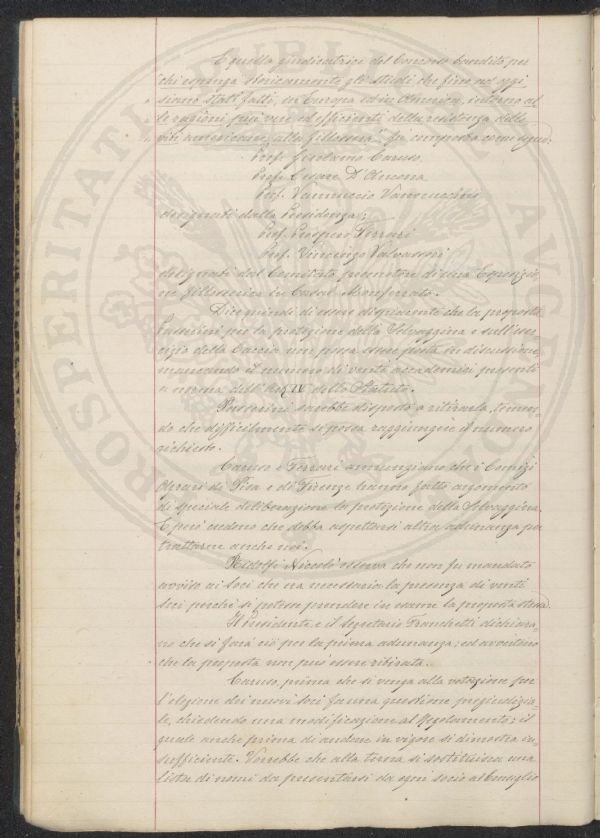 E quella giudicatrice del Concorso bandito per
chi esponga storicamente gli studi che fino ad oggi
siano stati fatti, in Europa ed in America, intorno al
le ragioni più vere ed efficienti della resistenza delle
viti americane alla fillossera" fu composta come segue:
Prof. Girolamo Caruso
Prof. Cesare D'Ancona
Prof. Vannuccio Vannuccini
designati dalla Presidenza;
Prof. Prospero Ferrari
Prof. Vincenzo Valvassori
designati dal Comitato promotore di una Esposizio,
ne fillosserica in Casal Monferrato.
Dice quindi di essere dispiacente che la proposta
Passerini per la protezione della Selvaggina e sull'eser
cizio della Caccia non possa essere posta in discussione,
mancando il numero di venti accademici presenti
a norma dell'Art. IV dello Statuto.
Passerini sarebbe disposto a ritirarla, temen,
do che difficilmente si possa raggiungere il numero
richiesto.
Caruso e Ferrari annunziano che i Comizi
Agrari di Pisa e di Firenze hanno fatto argomento
di speciale deliberazione la protezione della Selvaggina.
E però credono che debba aspettarsi altra adunanza per
trattarne anche noi.
Ridolfi Niccolò osserva che non fu mandato
avviso ai soci che era necessaria la presenza di venti
soci perché si potesse prendere in esame la proposta stessa.
Il Presidente e il Segretario Franchetti dichiara,
no che si farà ciò per la prima adunanza; ed avvertono
che la proposta non può essere ritirata.
Caruso, prima che si venga alla votazione per
l'elezione dei nuovi soci fa una questione pregiudizia,
le, chiedendo una modificazione al Regolamento; il
quale anche prima di andare in vigore si dimostra in,
sufficiente. Vorrebbe che alla terna si sostituisca una
lista di nomi da presentarsi da ogni socio al Consiglio
PROSPERITATI PUBLICAE AVGENDAE